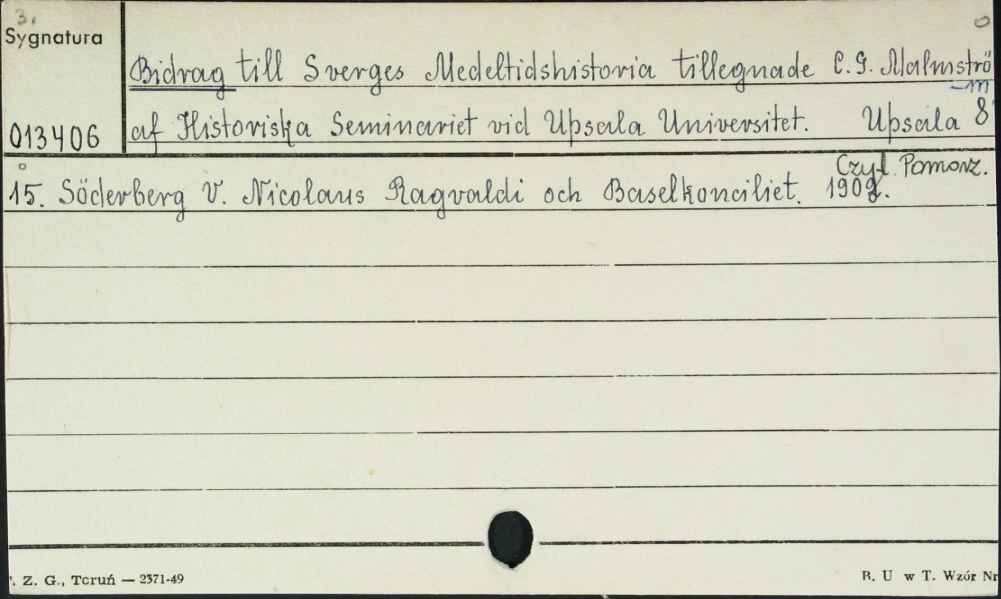 3.
Sygnatura
Bidrag till Sverges Medeltidshistoria tillegnade C. G. Malmströ
-m
013406 af Historiska Seminariet vid Upsala Universitet. Upsala 8°
Czyt. Pomorz.
15. Söderberg V. Nicolaus Ragvaldi och Baselkonciliet. 1902.
. Z. G., Toruń — 2371-49
B. U w T. Wzór Nr